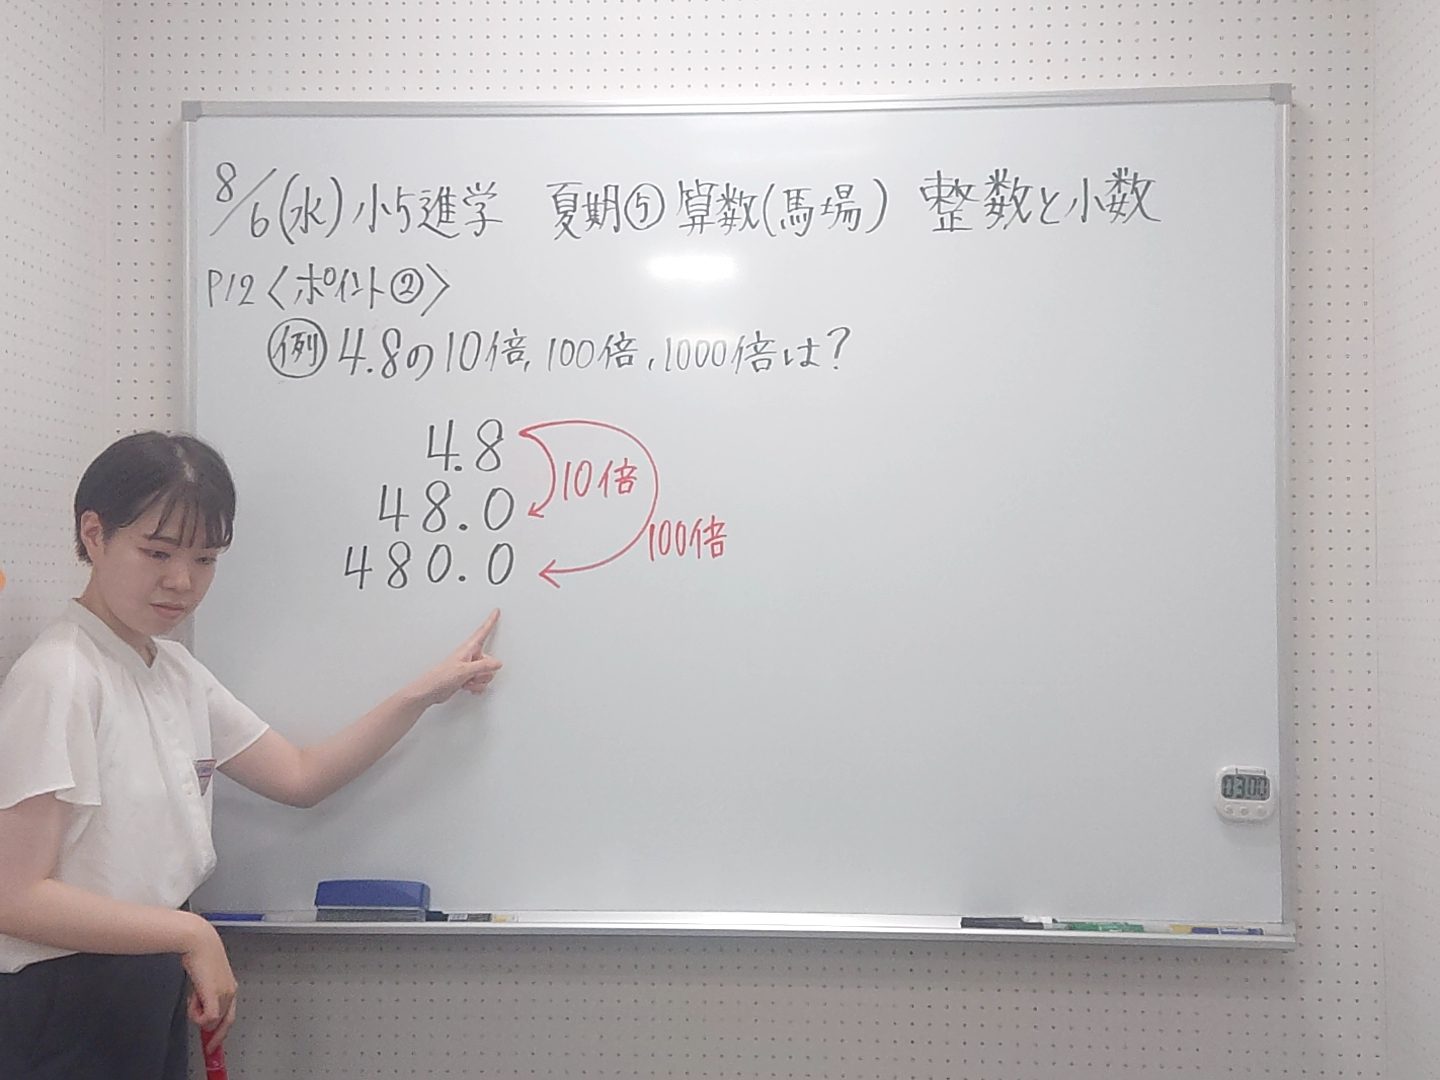 8/6(水)小5進学 夏期⑤算数(馬場) 整数と小数
P12〈ポイント②〉
例 4.8の10倍,100倍,1000倍は?
4.8
48.0
480.0
10倍
100倍
03:00